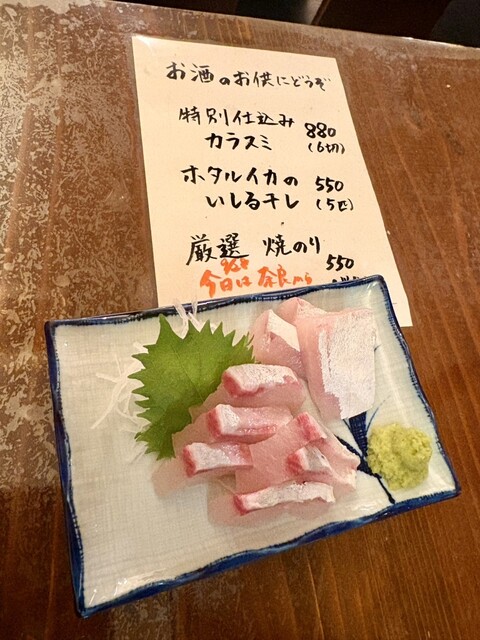 お酒のお供にどうぞ
特別仕込み
カラスミ 880
(6切)
ホタルイカの 550
いしる干し (5匹)
厳選 焼のり
550
今日は奈良から